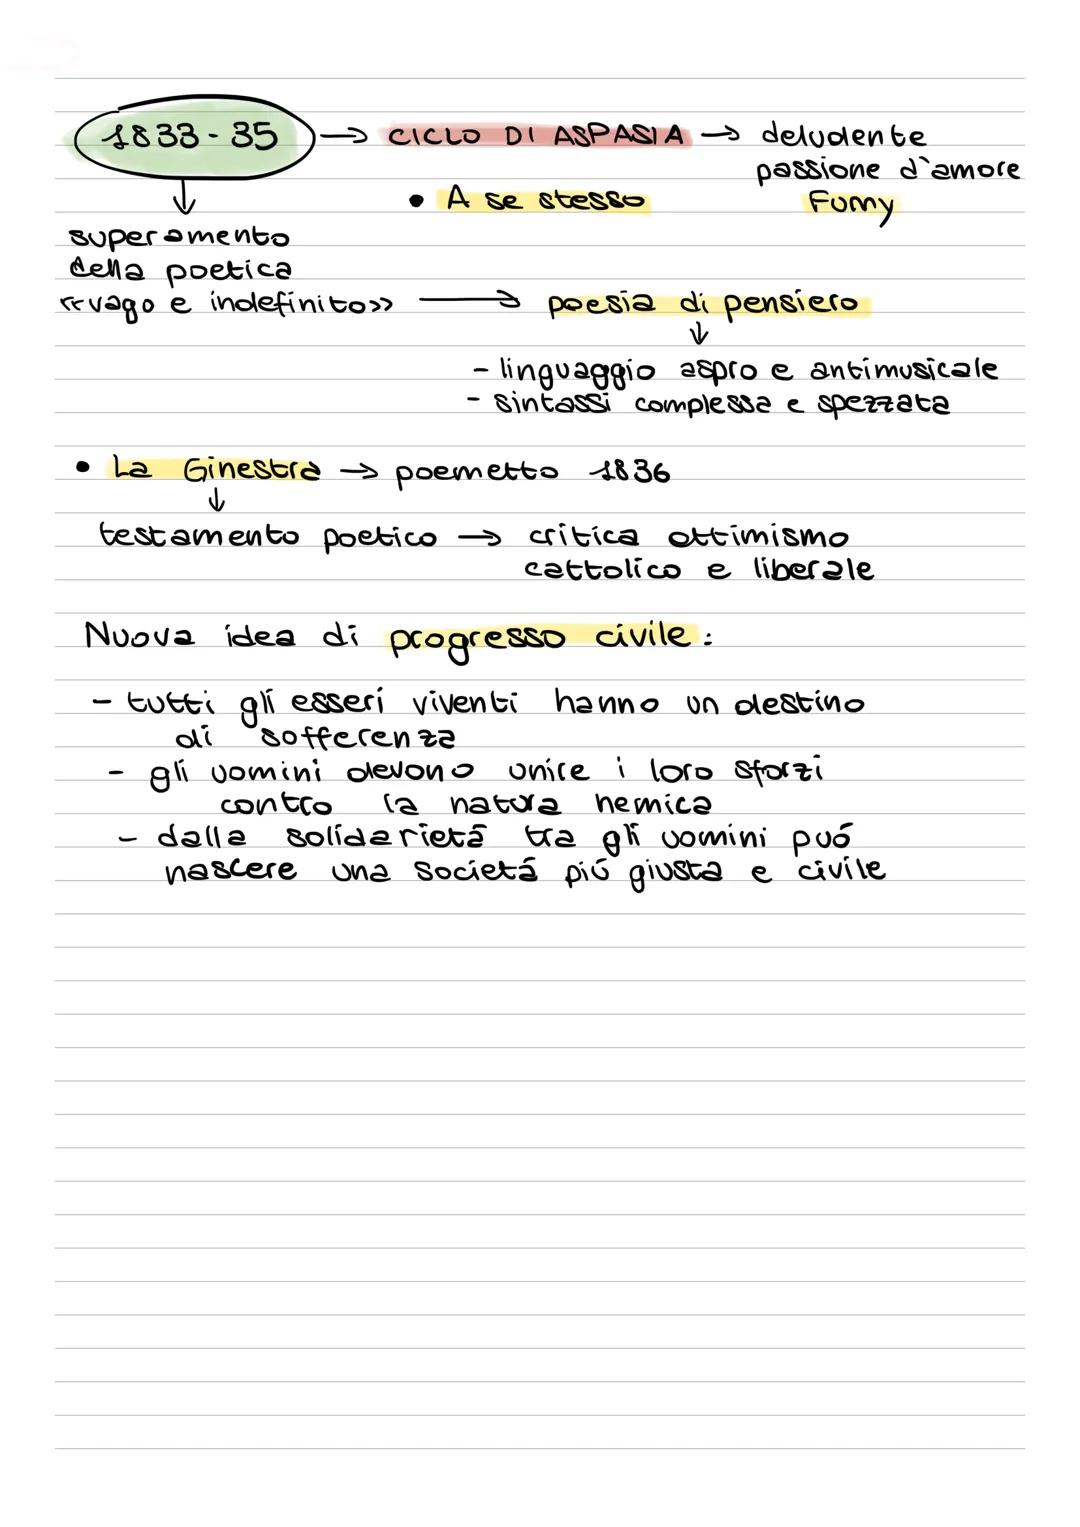 1833-35 → CICLO DI ASPASIA → deludente
passione d'amore
• A se stesso Fumy
↓
superamento
della poetica
<<vago e indefinito>> → poesia di pensiero
↓
- linguaggio aspro e antimusicale
- sintassi complessa e spezzata
• La Ginestra → poemetto 1836
↓
testamento poetico → critica ottimismo
cattolico e liberale
Nuova idea di progresso civile:
- tutti gli esseri viventi hanno un destino
di sofferenza
- gli uomini devono unire i loro sforzi
contro la natura nemica
- dalla solidarietá tra gli uomini puó
nascere una societá piú giusta e civile